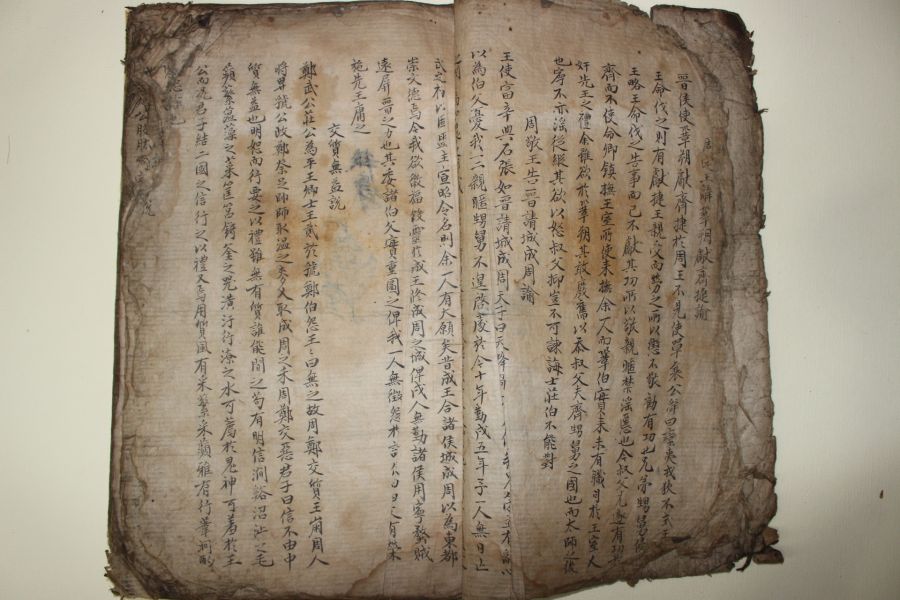 王辭鞏朔獻齊捷諭
晉侯使鞏朔獻齊捷於周王不見使單襄公辭曰蠻夷戎狄不式王
王命伐之則有獻捷王親受而勞之所以懲不敬勸有功也兄弟甥舅侵
王略王命伐之告事而已不獻其功所以敬親暱禁淫慝也今叔父克遂有功
齊而不使命卿鎮撫王室所使來撫余一人而鞏伯實來未有職司於王室又
奸先王之禮余雖欲於鞏朔其敢廢舊以忝叔父夫齊甥舅之國也而太師之後
也寧不亦淫從縱其欲以怒叔父抑豈不可諫誨士莊伯不能對
周敬王告晉請城成周諭
王使富辛與石張如晉請城成周天子曰天降
以為伯父憂我一二親暱甥舅不遑啟處於今十年勤戍五年予一人無日忘
武之 以固盟主宣昭令名則余一人有大願矣昔成王合諸侯城成周以為東都
崇文德焉今我欲徼福 靈於成王修成周之城俾戍人無勤諸侯用寧蝥賊
遠屏晉之力也其委諸伯父實重圖之俾我一人無徵怨
施先王庸之
交質無益說
鄭武公莊公為平王卿士王貳於虢鄭伯怨王王曰無之故周鄭交質王崩周人
將畀虢公政鄭祭足帥師取溫之麥又取成周之禾周鄭交惡君子曰信不由中
質無益也明恕而行要之以禮雖無有質誰能間之苟有明信澗谿沼沚之毛
蘋蘩薀藻之菜筐筥錡釜之器潢汙行潦之水可薦於鬼神可羞於王
公而況君子結二國之信行之以禮又焉用質風有采蘩采蘋雅有行葦泂酌
忠信也
說